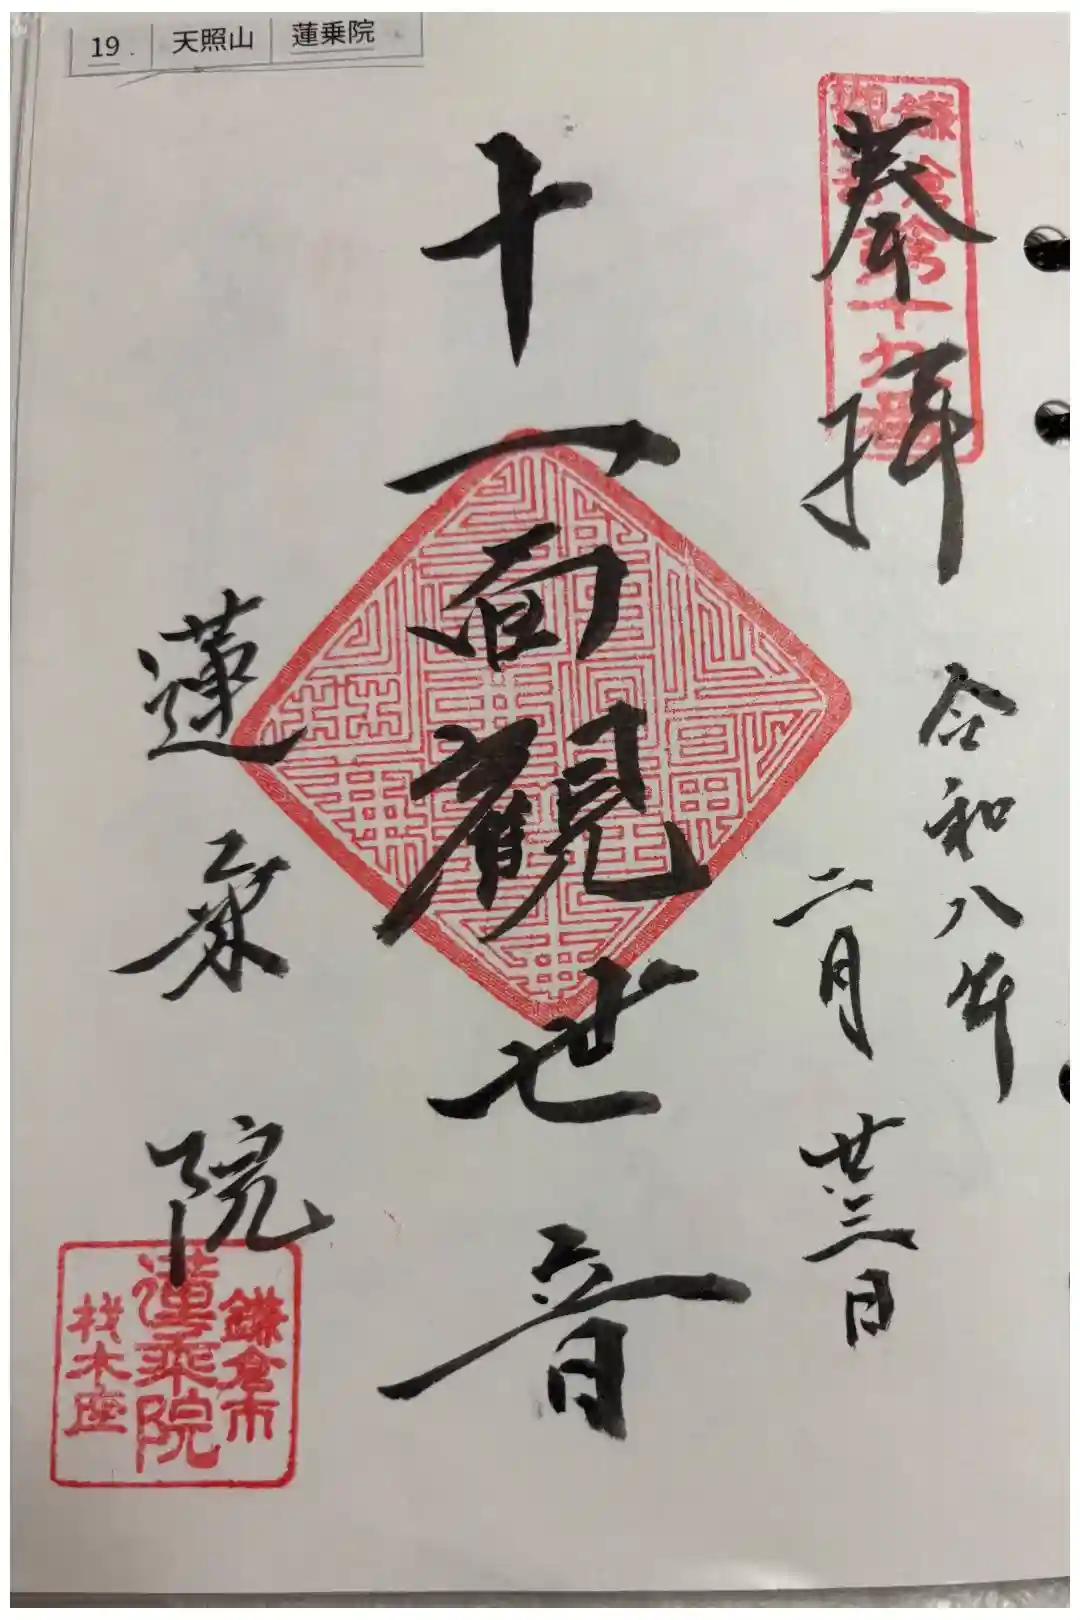 19. 天照山 蓮乗院
奉拝
鎌倉
観音
第十九番
令和八年
二月廿三日
十一面觀世音
蓮乗院
鎌倉市
蓮乗院
材木座